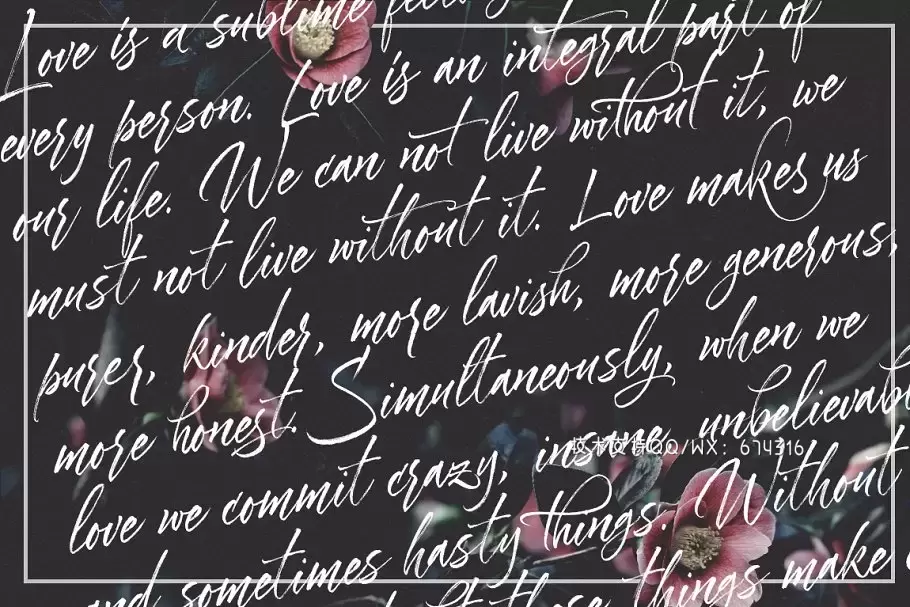 Love is a sublime feeling
every person. Love is an integral part of
our life. We can not live without it, we
must not live without it. Love makes us
purer, kinder, more lavish, more generous,
more honest. Simultaneously, when we
love we commit crazy, insane, unbelievabl
技术支持QQ/WX：674316
and sometimes hasty things. Without
those things make